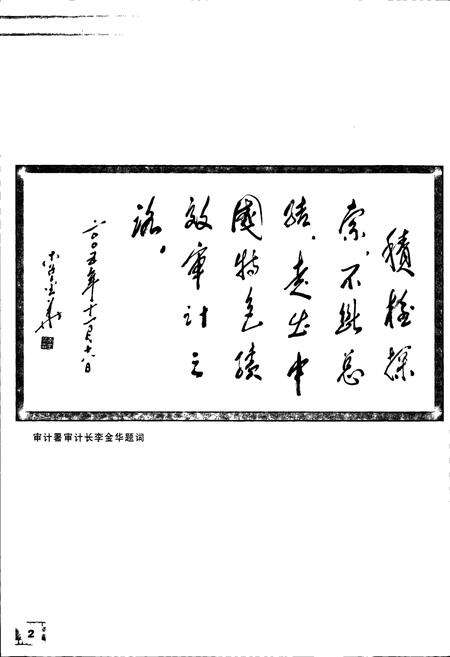 积极探
索，不断总
结，走出中
国特色绩
效审计之
路。
二〇〇五年十一月十八日
李金华
审计署审计长李金华题词
2